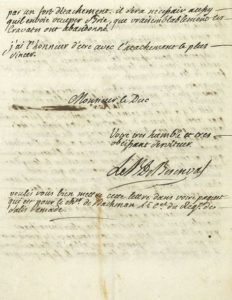 par un fort détachement. il sera nécessaire aussy
qu'il envoie occuper Brie, que vraisemblablement les
Cravates ont abandonné.
j'ai l'honneur d'être avec l'attachement le plus
sincere.
Monsieur le Duc
Votre tres humble et tres
obeissant serviteur
voulés vous bien mettre cette lettre dans votre paquet
qui est pour le